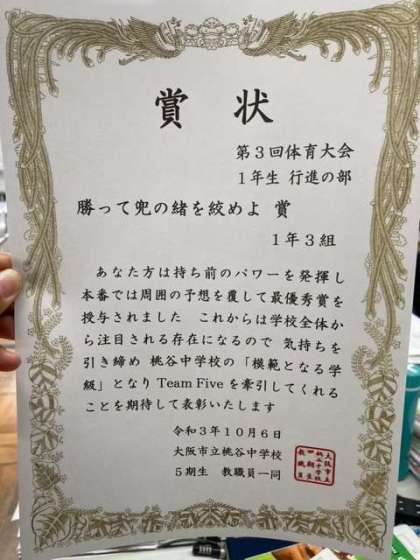 賞 状
第3回体育大会
1年生 行進の部
勝って兜の緒を絞めよ 賞
1年3組
あなた方は持ち前のパワーを発揮し
本番では周囲の予想を覆して最優秀賞を
授与されました これからは学校全体か
ら注目される存在になるので 気持ちを
引き締め 桃谷中学校の「模範となる学
級」となり Team Five を牽引してくれる
ことを期待して表彰いたします
令和3年10月6日
大阪市立桃谷中学校
5期生 教職員一同